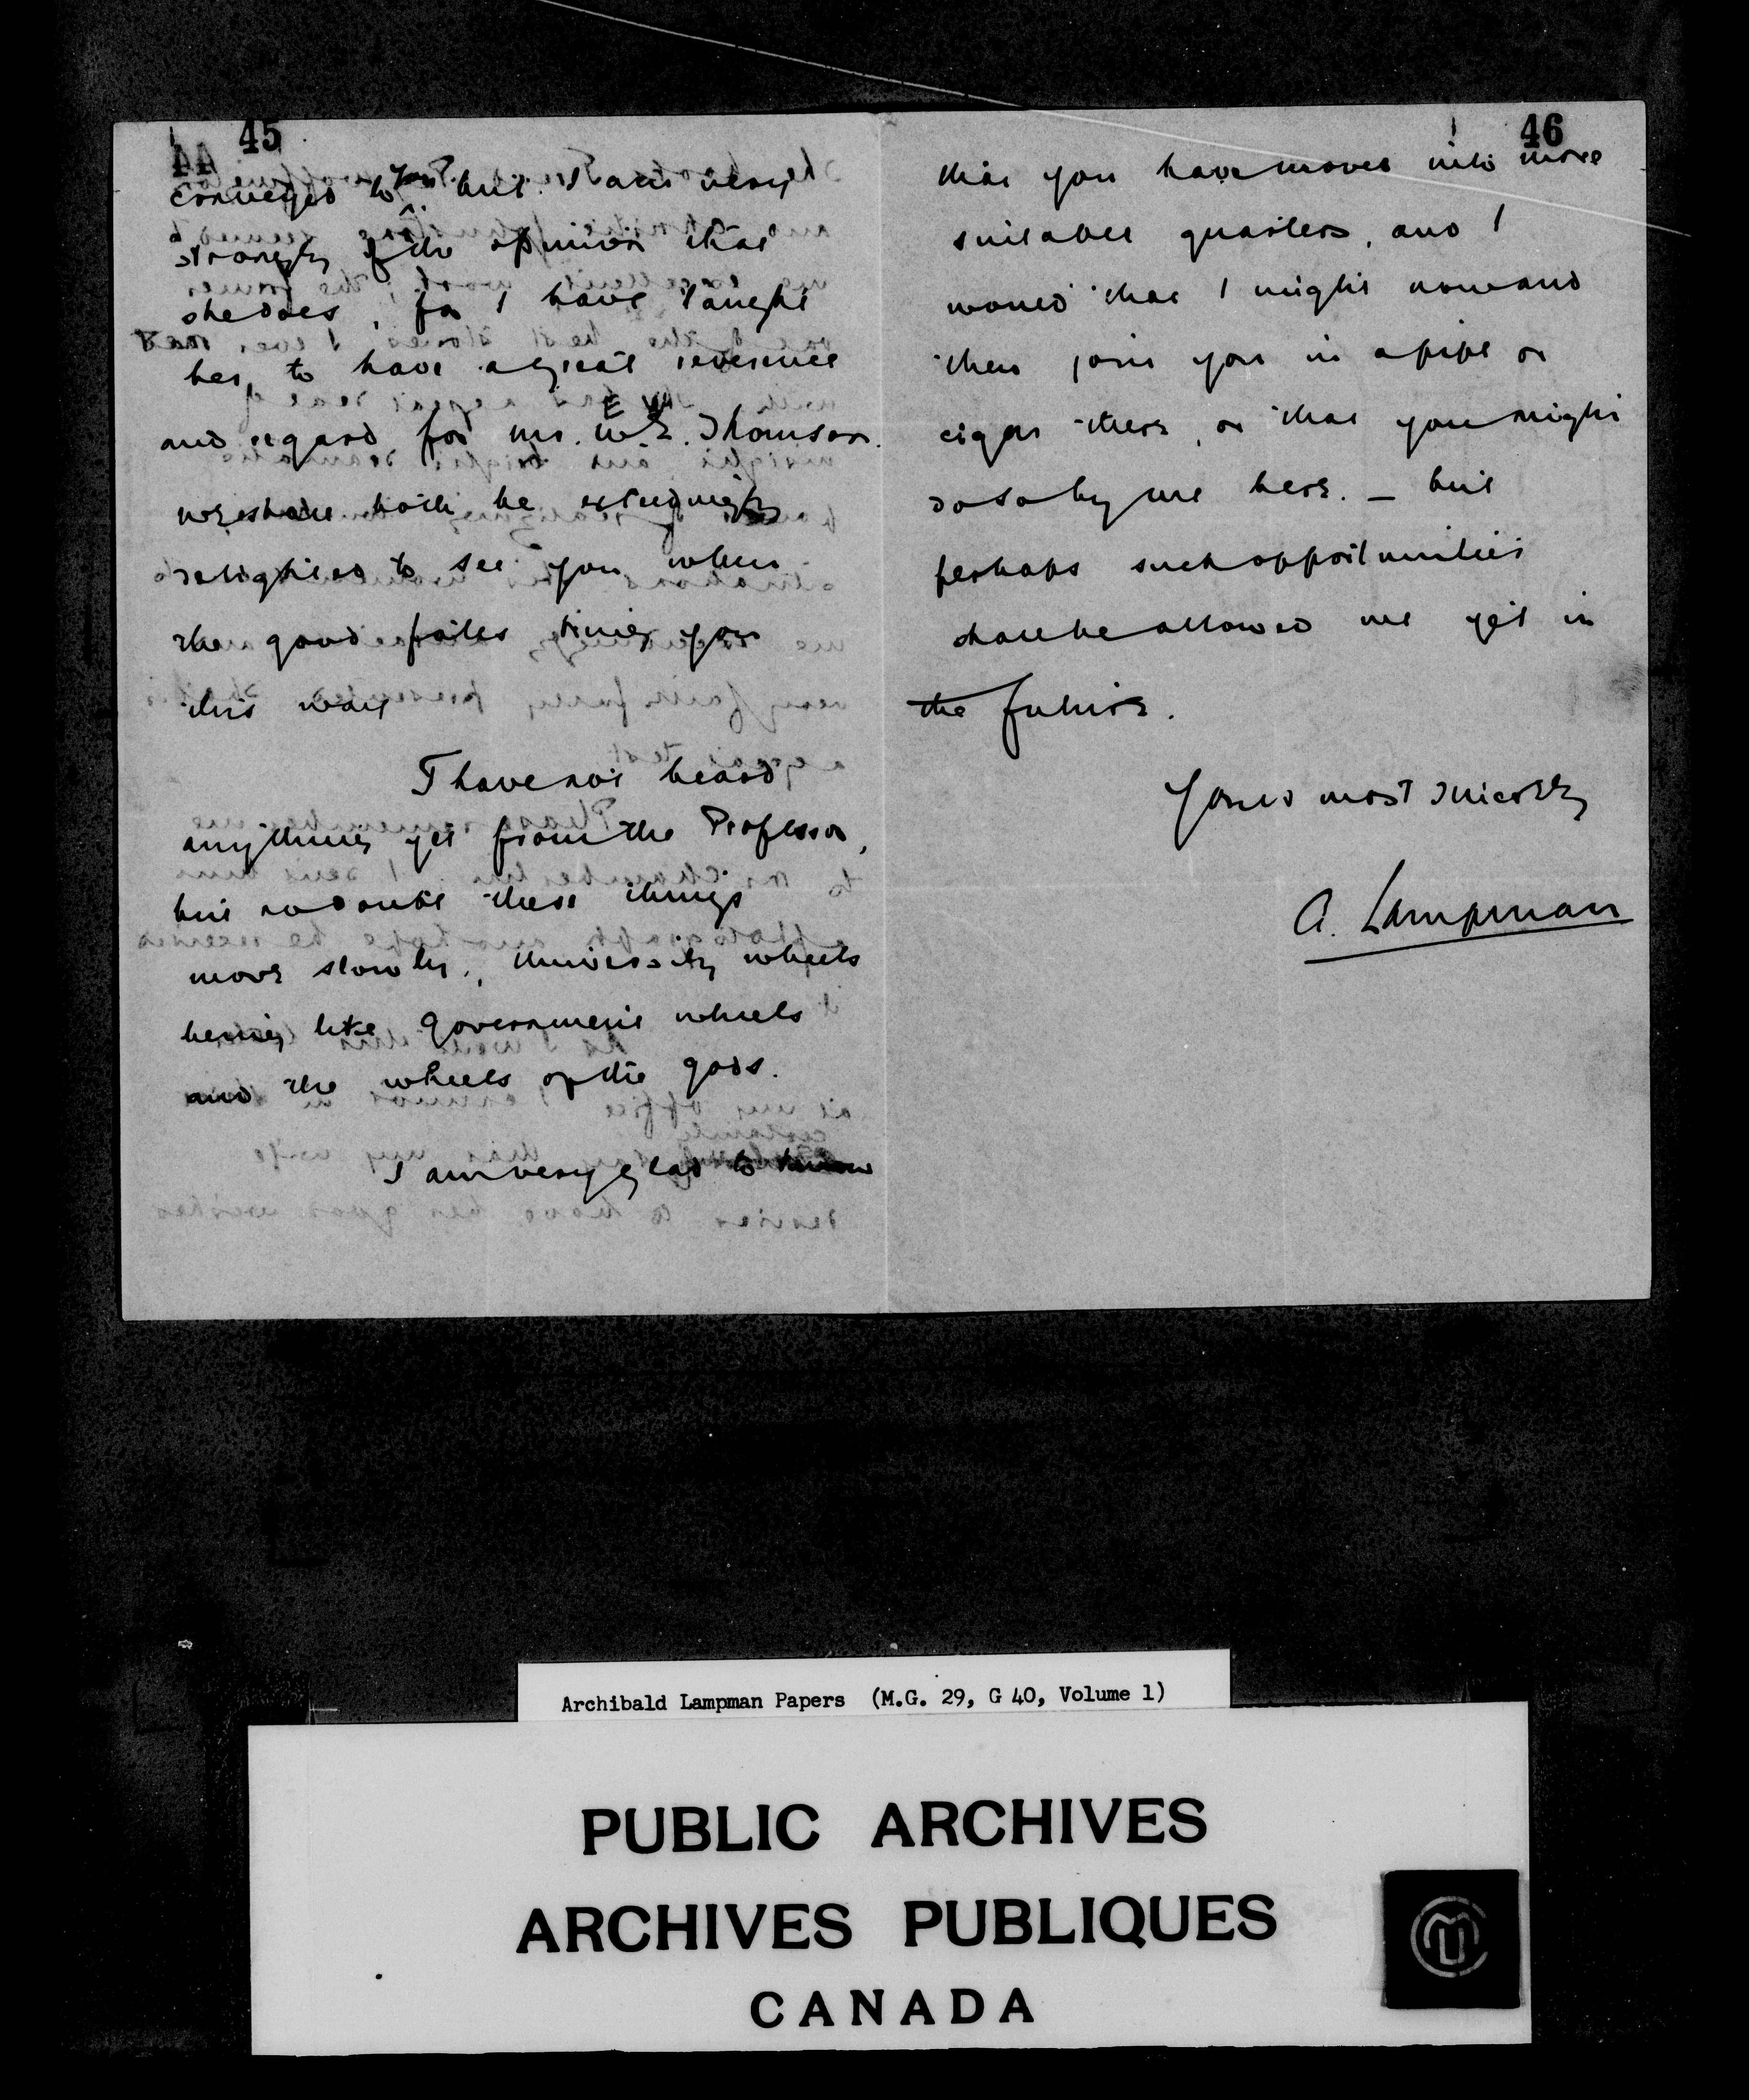 45
conveyed to you but I am very
strongly of the opinion that
she does, for I have taught
her, to have a great reverence
and regard for Mr. E. W. Thomson.
We shall both be exceedingly
delighted to see you when
the good fates bring you
this way
I have not heard
anything yet from the Professor,
but no doubt these things
move slowly, University wheels
being like Government wheels
and the wheels of the gods.
I am very glad to know
46
that you have moved into more
suitable quarters, and I
would that I might now and
then join you in a pipe or
cigar there, or that you might
do so by me here. – but
perhaps such opportunities
shall be allowed me yet in
the future.
Yours most sincerely
A. Lampman
Archibald Lampman Papers (M.G. 29, G 40, Volume 1)
PUBLIC ARCHIVES
ARCHIVES PUBLIQUES
CANADA